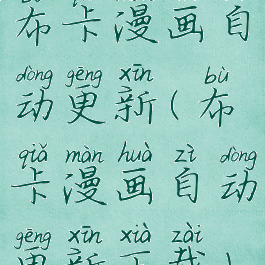 布卡漫画自
dòng gēng xīn bù
动更新(布
qiǎ màn huà zì dòng
卡漫画自动
gēng xīn xià zài
更新下载)